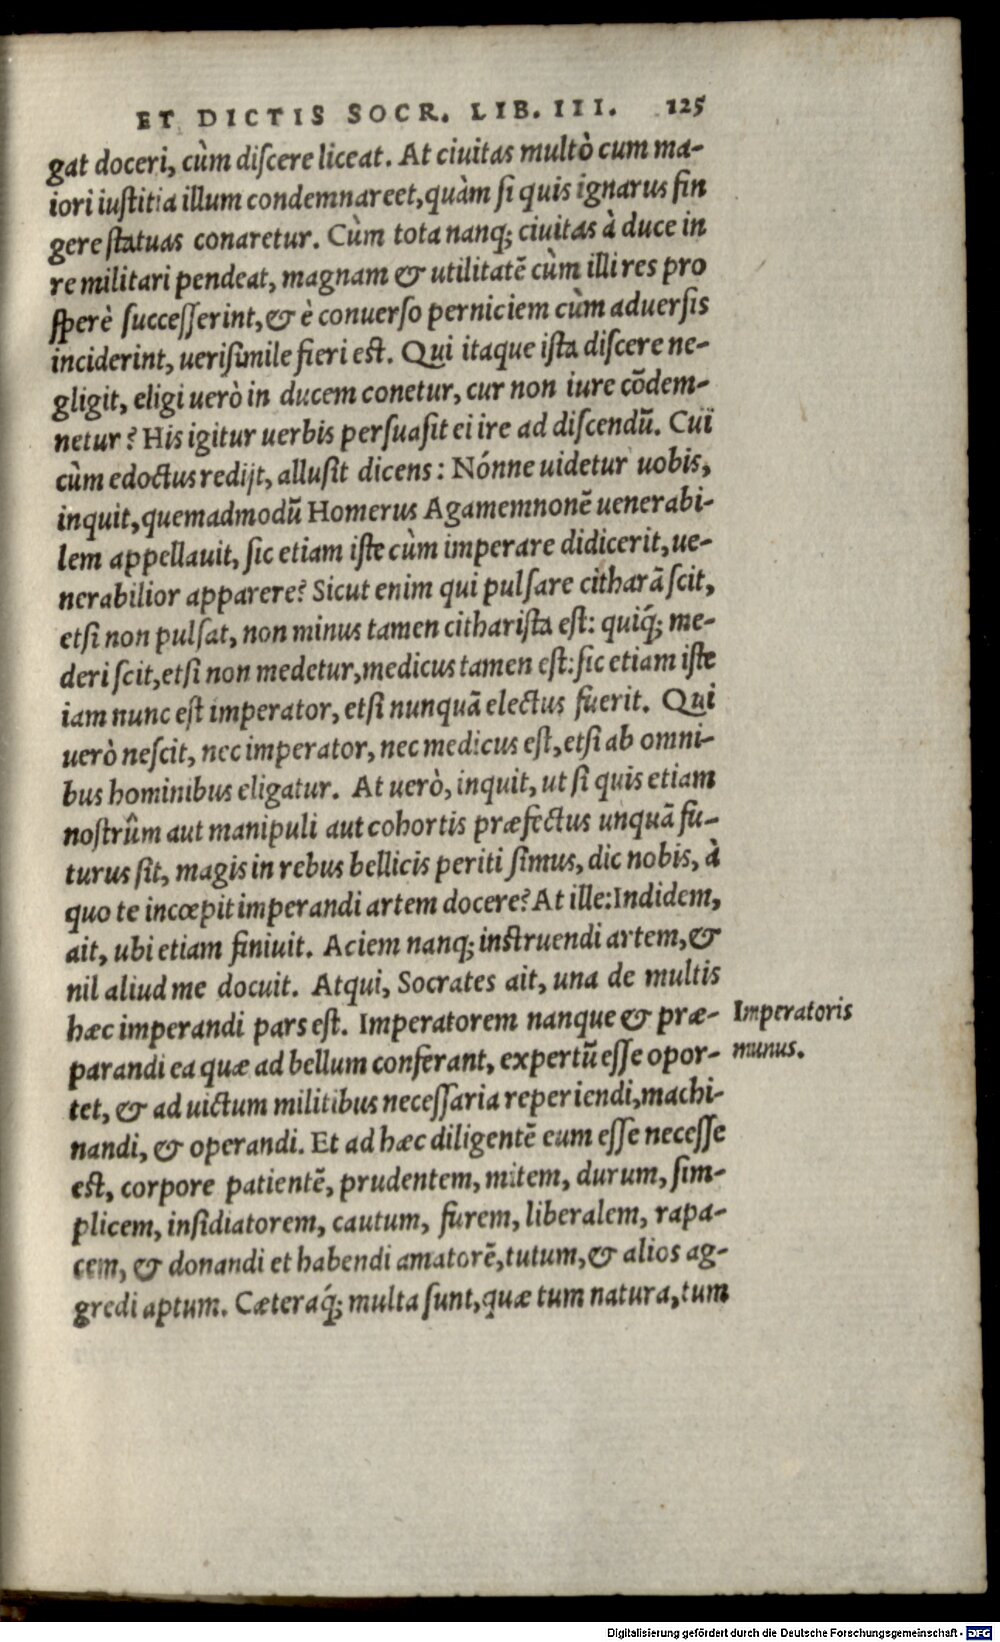 ET DICTIS SOCR. LIB. III. 125
gat doceri, cùm diſcere liceat. At ciuitas multò cum ma-
iori iuſtitia illum condemnareet, quàm ſi quis ignarus fin
gere ſtatuas conaretur. Cùm tota nanq; ciuitas à duce in
re militari pendeat, magnam & utilitatē cùm illi res pro
ſperè ſucceſſerint, & è conuerſo perniciem cùm aduerſis
inciderint, ueriſimile fieri eſt. Qui itaque iſta diſcere ne-
gligit, eligi uerò in ducem conetur, cur non iure cōdem-
netur? His igitur uerbis perſuaſit ei ire ad diſcendū. Cui
cùm edoctus redijt, alluſit dicens: Nónne uidetur uobis,
inquit, quemadmodū Homerus Agamemnonē uenerabi-
lem appellauit, ſic etiam iſte cùm imperare didicerit, ue-
nerabilior apparere? Sicut enim qui pulſare citharā ſcit,
etſi non pulſat, non minus tamen cithariſta eſt: quiq́; me-
deri ſcit, etſi non medetur, medicus tamen eſt: ſic etiam iſte
iam nunc eſt imperator, etſi nunquā electus fuerit. Qui
uerò neſcit, nec imperator, nec medicus eſt, etſi ab omni-
bus hominibus eligatur. At uerò, inquit, ut ſi quis etiam
noſtrûm aut manipuli aut cohortis præfectus unquā fu-
turus ſit, magis in rebus bellicis periti ſimus, dic nobis, à
quo te incœpit imperandi artem docere? At ille: Indidem,
ait, ubi etiam finiuit. Aciem nanq; inſtruendi artem, &
nil aliud me docuit. Atqui, Socrates ait, una de multis
hæc imperandi pars eſt. Imperatorem nanque & præ-
parandi ea quæ ad bellum conferant, expertū eſſe opor-
tet, & ad uictum militibus neceſſaria reperiendi, machi-
nandi, & operandi. Et ad hæc diligentē eum eſſe neceſſe
eſt, corpore patientē, prudentem, mitem, durum, ſim-
plicem, inſidiatorem, cautum, furem, liberalem, rapa-
cem, & donandi et habendi amatorē, tutum, & alios ag-
gredi aptum. Cæteraq́; multa ſunt, quæ tum natura, tum
Imperatoris
munus.
Digitalisierung gefördert durch die Deutsche Forschungsgemeinschaft - DFG